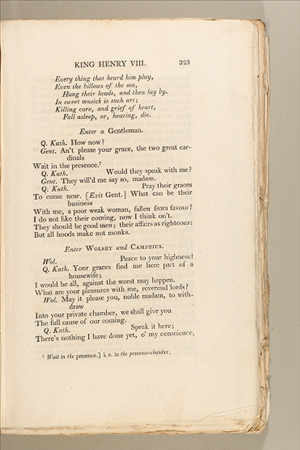 KING HENRY VIII. 325
Every thing that heard him play,
Even the billows of the sea,
Hung their heads, and then lay by.
In sweet musick is such art;
Killing care, and grief of heart,
Fall asleep, or, hearing, die.
Enter a Gentleman.
Q. Kath. How now?
Gent. An't please your grace, the two great car-
dinals
Wait in the presence.⁷
Q. Kath. Would they speak with me?
Gent. They will'd me say so, madam.
Q. Kath. Pray their graces
To come near. [Exit Gent.] What can be their
business
With me, a poor weak woman, fallen from favour?
I do not like their coming, now I think on't.
They should be good men; their affairs as righteous:
But all hoods make not monks.
Enter WOLSEY and CAMPEIUS.
Wol. Peace to your highness!
Q. Kath. Your graces find me here part of a
housewife;
I would be all, against the worst may happen.
What are your pleasures with me, reverend lords?
Wol. May it please you, noble madam, to with-
draw
Into your private chamber, we shall give you
The full cause of our coming.
Q. Kath. Speak it here;
There's nothing I have done yet, o' my conscience,
⁷ Wait in the presence.] i. e. in the presence-chamber.